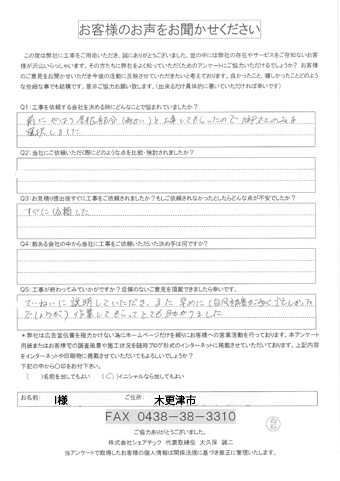 お客様のお声をお聞かせください
この度は弊社に工事をご用命いただき、誠にありがとうございました。世の中には弊社の存在やサービスをご存知ないお客
様が沢山いらっしゃいます。その方たちに弊社をよく知っていただくためのアンケートにご協力いただけるでしょうか？ お客様
のご意見をお聞かせいただき今後の活動に反映させていただきたいと考えております。良かったこと、嬉しかったことどのよう
な些細な事でも結構です、是非ご協力お願い致します。（出来るだけ具体的に書いていただければ幸いです）
Q1：工事を依頼する会社を決める時にどんなことで悩まれていましたか？
前に
選択しました
Q2：当社にご依頼いただく際にどのような点を比較・検討されましたか？
Q3：お見積り提出後すぐに工事をご依頼されましたか？もしご依頼されなかったとしたらどんな点が不安でしたか？
すぐに依頼した
Q4：数ある会社の中から当社に工事をご依頼いただいた決め手は何ですか？
Q5：工事が終わってみていかがですか？忌憚のないご意見を頂戴できましたら幸いです。
ていねいに説明していただき、また早めに
作業してもらってとても助かりました
＊弊社は広告宣伝費を極力かけない為にホームページだけを頼りにお客様への営業活動を行っております。本アンケート
用紙またはお客様宅での調査風景や施工状況を随時ブログ形式のインターネットに掲載させていただいております。上記内容
をインターネットや印刷物に掲載させていただいてもよろしいでしょうか？
下記の中から〇印をお付下さい。
（ ）名前を出してもよい （〇）イニシャルなら出してもよい
お名前： I様 ご住所： 木更津市
FAX 0438-38-3310
ご協力ありがとうございました。
株式会社シェアテック 代表取締役 大久保 誠二
当アンケートで取得したお客様の個人情報は関係法規に基づき厳正に管理いたします。